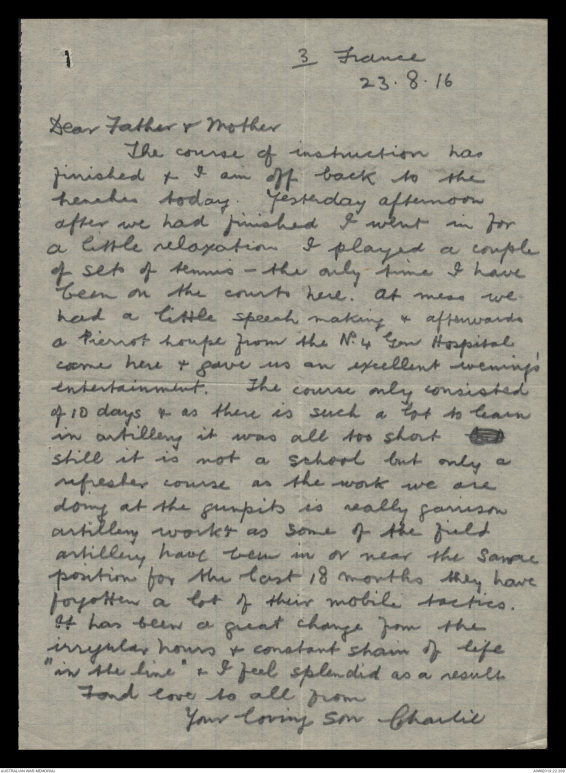 1
3 France
23.8.16
Dear Father & Mother
The course of instruction has
finished & I am off back to the
trenches today. Yesterday afternoon
after we had finished I went in for
a little relaxation I played a couple
of sets of tennis - the only time I have
been on the courts here. At mess we
had a little speech making & afterwards
a Pierrot troupe from the No. 4 Gen Hospital
came here & gave us an excellent evening's
entertainment. The course only consisted
of 10 days & as there is such a lot to learn
in artillery it was all too short
still it is not a school but only a
refresher course as the work we are
doing at the gunpits is really garrison
artillery work & as some of the field
artillery have been in or near the same
position for the last 18 months they have
forgotten a lot of their mobile tactics.
It has been a great change from the
irregular hours & constant strain of life
"in the line" & I feel splendid as a result
Fond love to all from
Your loving son Charlie
AUSTRALIAN WAR MEMORIAL